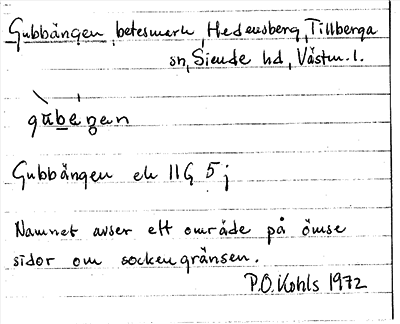 Gubbängen, betesmark, Hedensberg, Tillberga
sn, Siende hd, Västm. l.
gubeŋen
Gubbängen ek 11G 5j
Namnet avser ett område på ömse
sidor om sockengränsen.
P.O. Kohls 1972